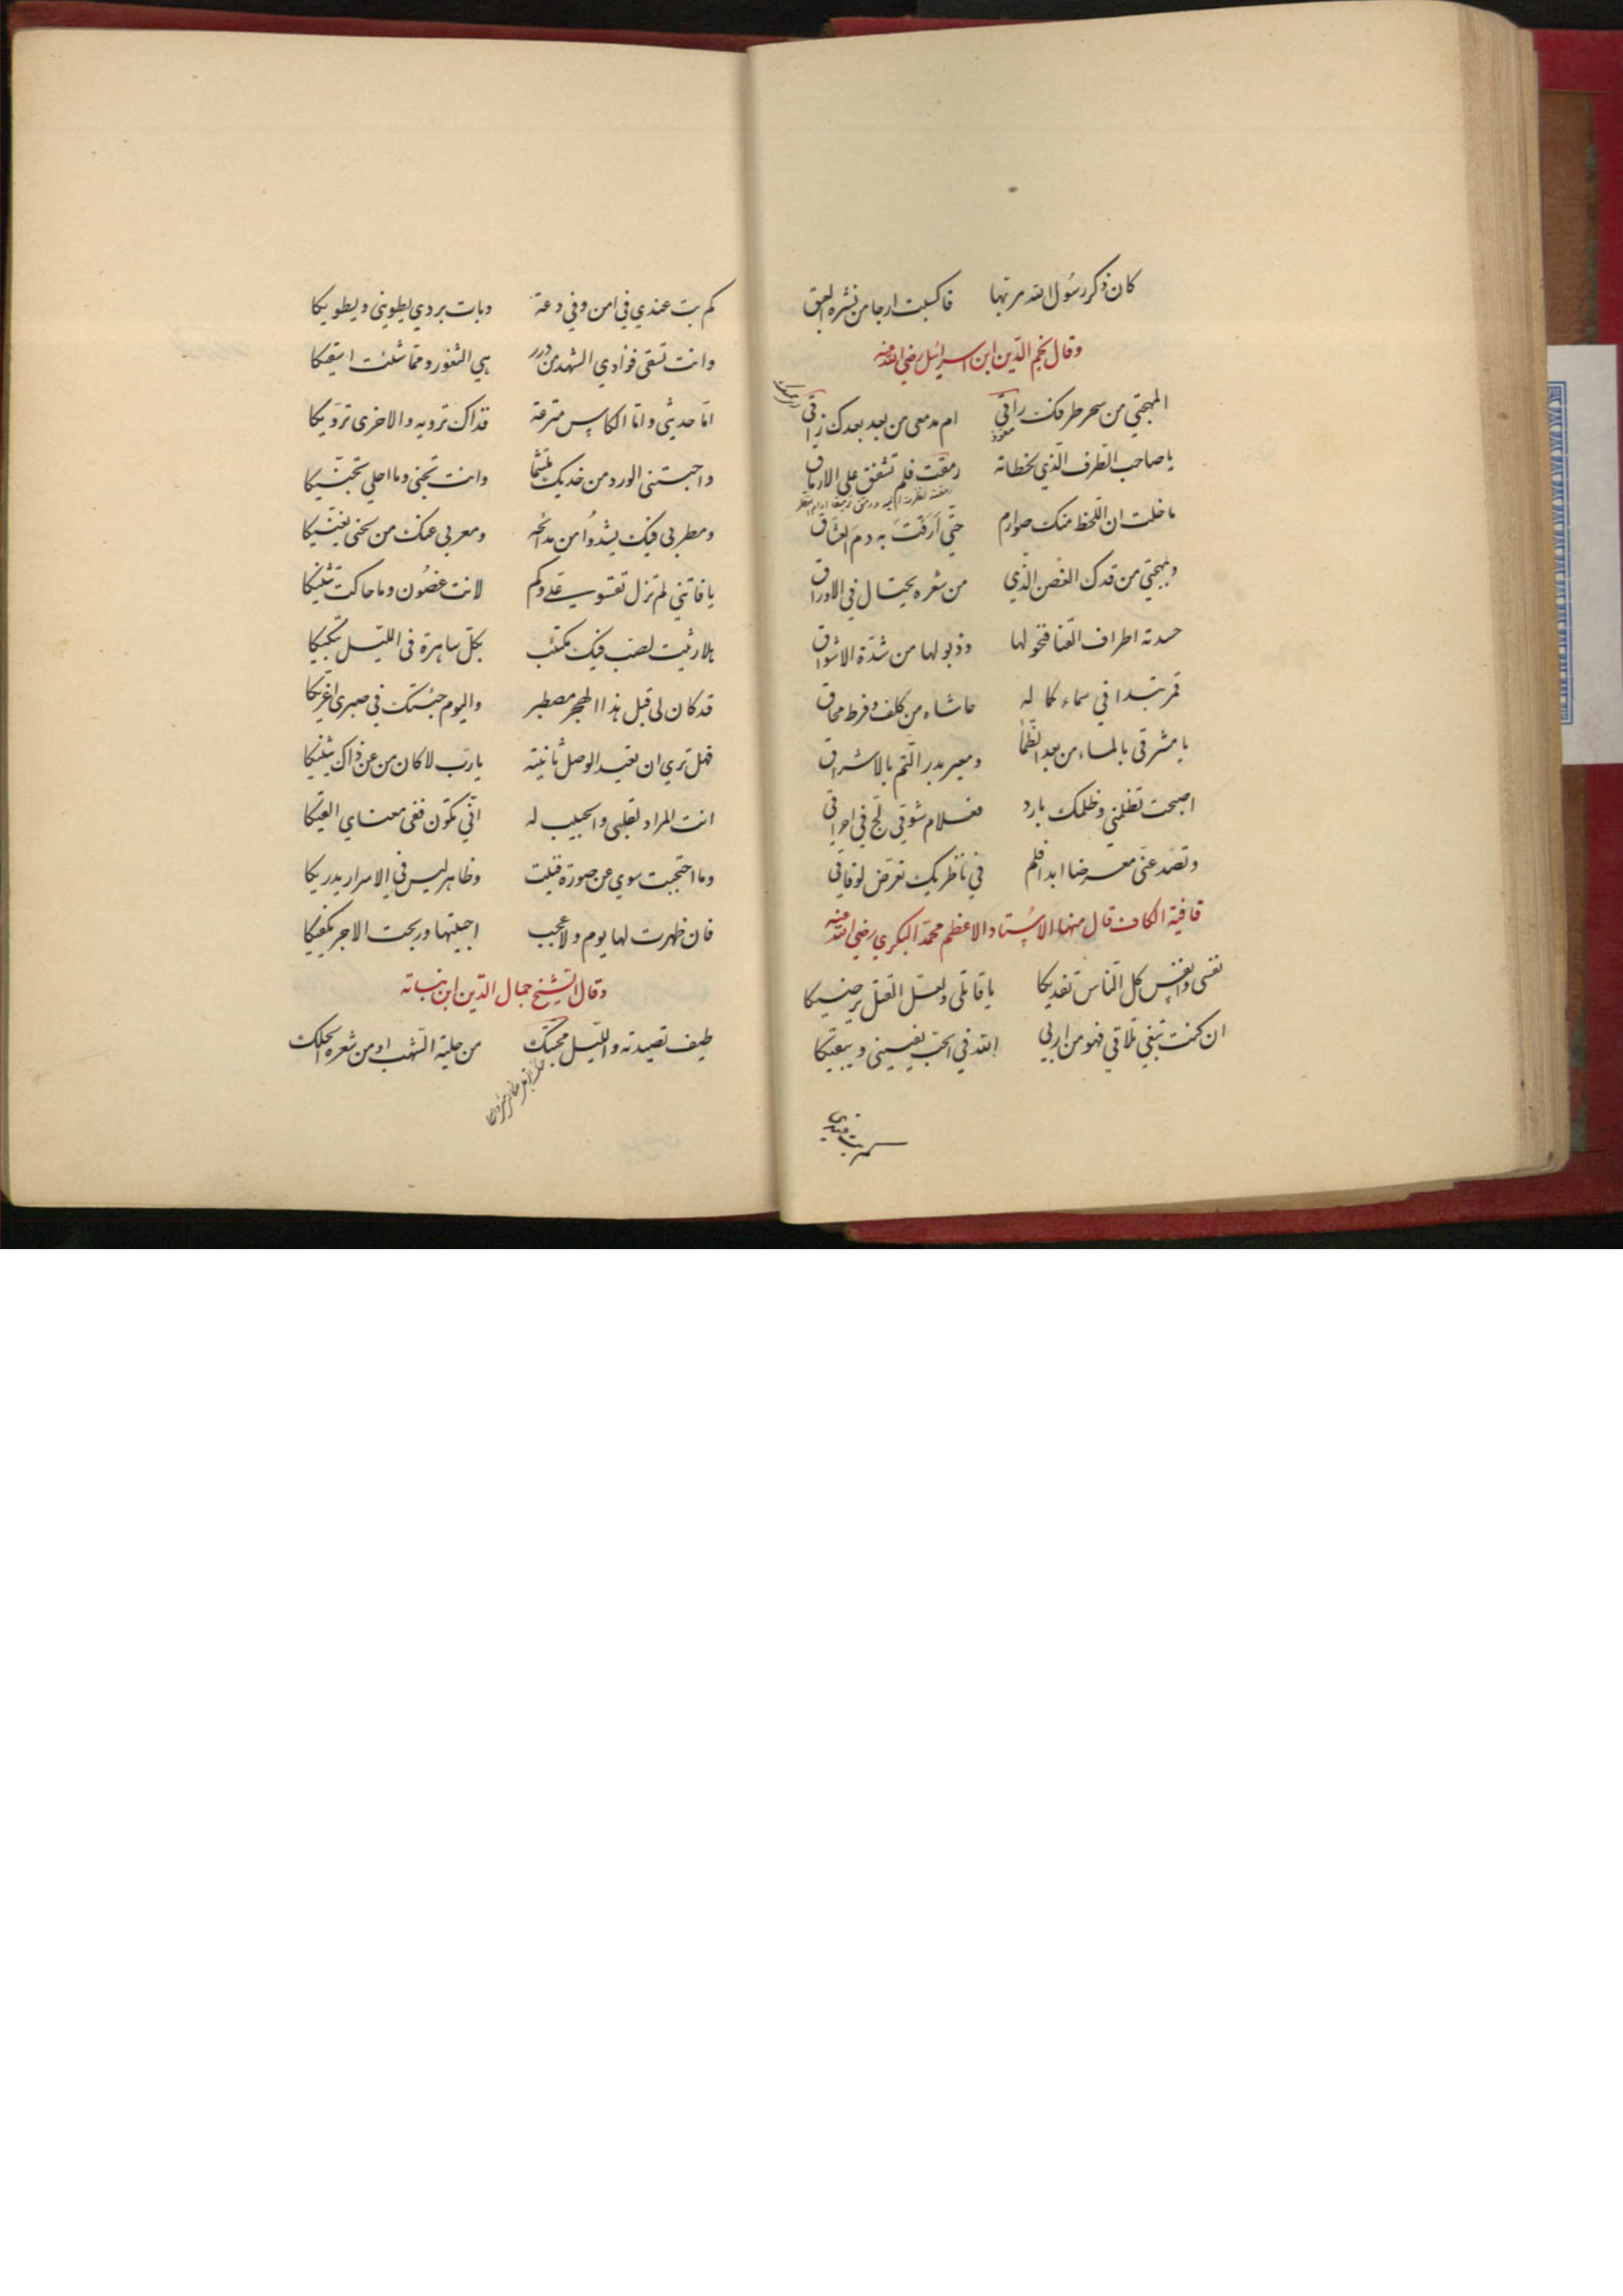 كان ذكر رسول الله مر بها فاكسبت ارجا من نشره العبق
وقال نجم الدين ابن اسرائيل رضي الله عنه
المهجتي من سحر طرفك راقي ام مدمعي من بعد بعدك راقي
يا صاحب الطرف الذي لحظاته رمقت فلم تشفق علي الارماق
ما خلت ان اللحظ منك صوارم حتي أرقتَ به دم العشاق
وبمهجتي من قدك الغصن الذي من شعره يختال في الاوراق
حسدته اطراف القنا فنحولها وذبولها من شدة الاشواق
قمر تبدا في سماء كماله حاشاه من كلف وفرط محاق
يا مشرقي بالماء من بعد الظما ومعير بدر التم بالاشراق
اصبحت تظلمني وظلمك بارد فغلام شوقي لج في احراقي
وتصد عني معرضا ابدا فلم في ناظريك تعرض لوفاقي
قافية الكاف قال منها الاستاد الاعظم محمد البكري رضي الله عنه
نفسي وانفس كل الناس تفديكا يا قاتلي ولعل القتل يرضيكا
ان كنت تبغي تلافي فهو من اربي الله في الحب يفنيني ويبقيكا
كم بت عندي في امن وفي دعة وبات بردي يطويني ويطويكا
وانت تسقي فؤادي الشهد من درر هي الثغور ومما شئت اسقيكا
اما حديثي واما الكاس مترعة فذاك ترويه والاخرى ترويكا
واجبتني الورد من خديك ملتثما وانت تجني وما احلي تجنيكا
ومطربي فيك يشدوا من مدائحه ومعربي عنك من لحني يغنيكا
يا فاتني لم تزل تقسو علي وكم لانت غضون وما حاكت تثنيكا
هلا رثيت لصب فيك مكتئب بكل ساهرة في الليل تبكيكا
قد كان لي قبل هذا الهجر مصطبر واليوم جئتك في صبري اعزيكا
فهل تري ان تعيد الوصل ثانية يا رب لا كان من عن ذاك يثنيكا
انت المراد لقلبي والحبيب له اني تكون ففي معناي القيكا
وما احتجبت سوي عن صورة فنيت وظاهر ليس في الاسرار يدريكا
فان ظهرت لها يوم ولا عجب احييتها وربحت الاجر يكفيكا
وقال الشيخ جمال الدين ابن نباته
طيف تصيدته والليل محتبك من حلية الشهب او من شعره الحلك